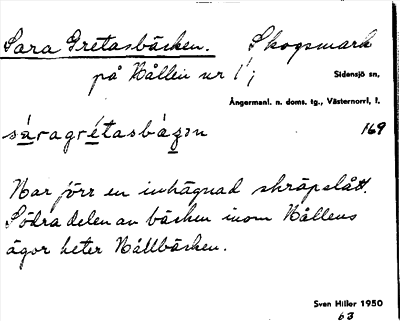 Sara Gretasbäcken. Skogsmark
på Nållen nr 1;
Sidensjö sn,
Ångermanl. n. doms. tg., Västernorrl. l.
169
Nar förr en inhägnad skräpslått.
Södra delen av bäcken inom Nållens
ägor heter Nållbäcken.
Sven Hiller 1950
63